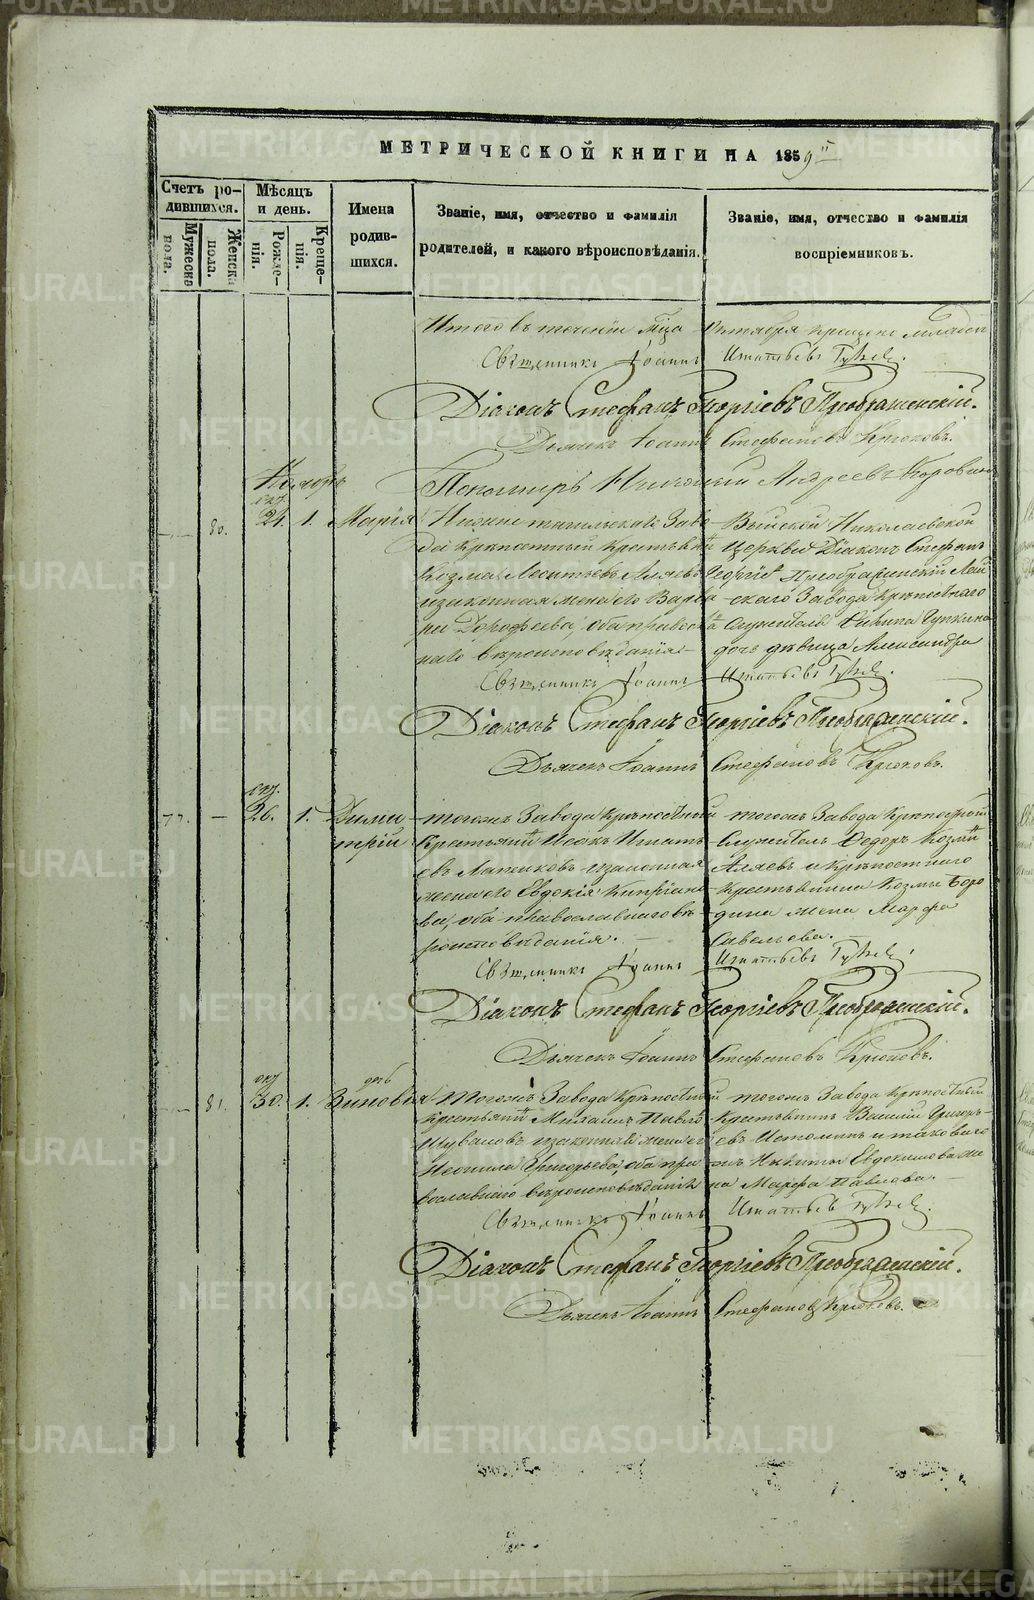 МЕТРИЧЕСКОЙ КНИГИ НА 1859
Счетъ родившихся.
Мужеска пола.
Женска пола.
Мѣсяцъ и день.
Рожденія.
Крещенія.
Имена родившихся.
Званіе, имя, отчество и фамилія
родителей, и какого вѣроисповѣданія.
Званіе, имя, отчество и фамилія
воспріемниковъ.
Итого въ теченіи Мца Октября крещено младен
Священникъ Іоаннъ Игнатьевъ
Діаконъ Стефанъ Георгіевъ Преображенскій.
Дьячекъ Іоаннъ Стефановъ Крюковъ.
Пономарь Николай Андреевъ Коровинъ
Ноябрь
окт.
80. 24. 1. Марія
Нижне тагильскаго Заво
да крѣпостный крестьянинъ
Козма Леонтьевъ Аляевъ
и законная жена его Варва
ра Дорофеева, оба православ
наго вѣроисповѣданія
Выйской Николаевской
Церкви Діаконъ Стефанъ
Георгіев Преображенскій
скаго Завода крѣпостнаго
служителя
дочь дѣвица Александра
Священникъ Іоаннъ Игнатьевъ
Діаконъ Стефанъ Георгіевъ Преображенскій.
Дьячекъ Іоаннъ Стефановъ Крюковъ.
окт.
77. – 26. 1. Димитрій
тогожъ Завода крѣпостный
крестьянинъ Исакъ Игнать
евъ и законная
жена его Евдокія Кипріано
ва, оба православнаго вѣ
роисповѣданія.
тогожъ Завода крѣпостной
служитель Федоръ Козминъ
Аляевъ и крѣпостнаго
крестьянина Козмы Боро
дина жена Марфа
Савельева.
Священникъ Іоаннъ Игнатьевъ
Діаконъ Стефанъ Георгіевъ Преображенскій.
Дьячекъ Іоаннъ Стефановъ Крюковъ.
окт
81. 30. 1. Зиновья
Тогожъ Завода крѣпостный
крестьянинъ Михаилъ Павлов
Шуваловъ и законная жена ег
Неонила Григорьева, оба пра
вославнаго вѣроисповѣданія
тогожъ Завода крѣпостный
крестьянинъ Василій Григорь
евъ Истоминъ и таковаго
жъ Никиты Евдокимова же
на Марфа Павлова.
Священникъ Іоаннъ Игнатьевъ
Діаконъ Стефанъ Георгіевъ Преображенскій.
Дьячекъ Іоаннъ Стефановъ Крюковъ.
METRIKI.GASO-URAL.RU